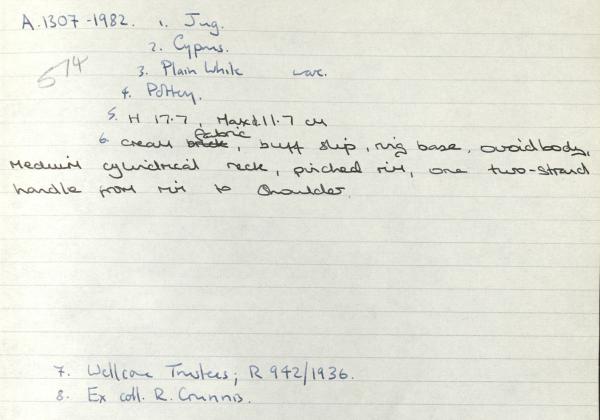 A.1307-1982. 1. Jug.
2. Cyprus.
574
3. Plain White ware.
4. Pottery.
5. H 17.7, Max d. 11.7 cm
fabric
6. cream brick, buff slip, ring base, ovoid body,
medium cylindrical neck, pinched rim, one two-strand
handle from rim to shoulder.
7. Wellcome Trustees; R 942/1936.
8. Ex coll. R. Gunnis.